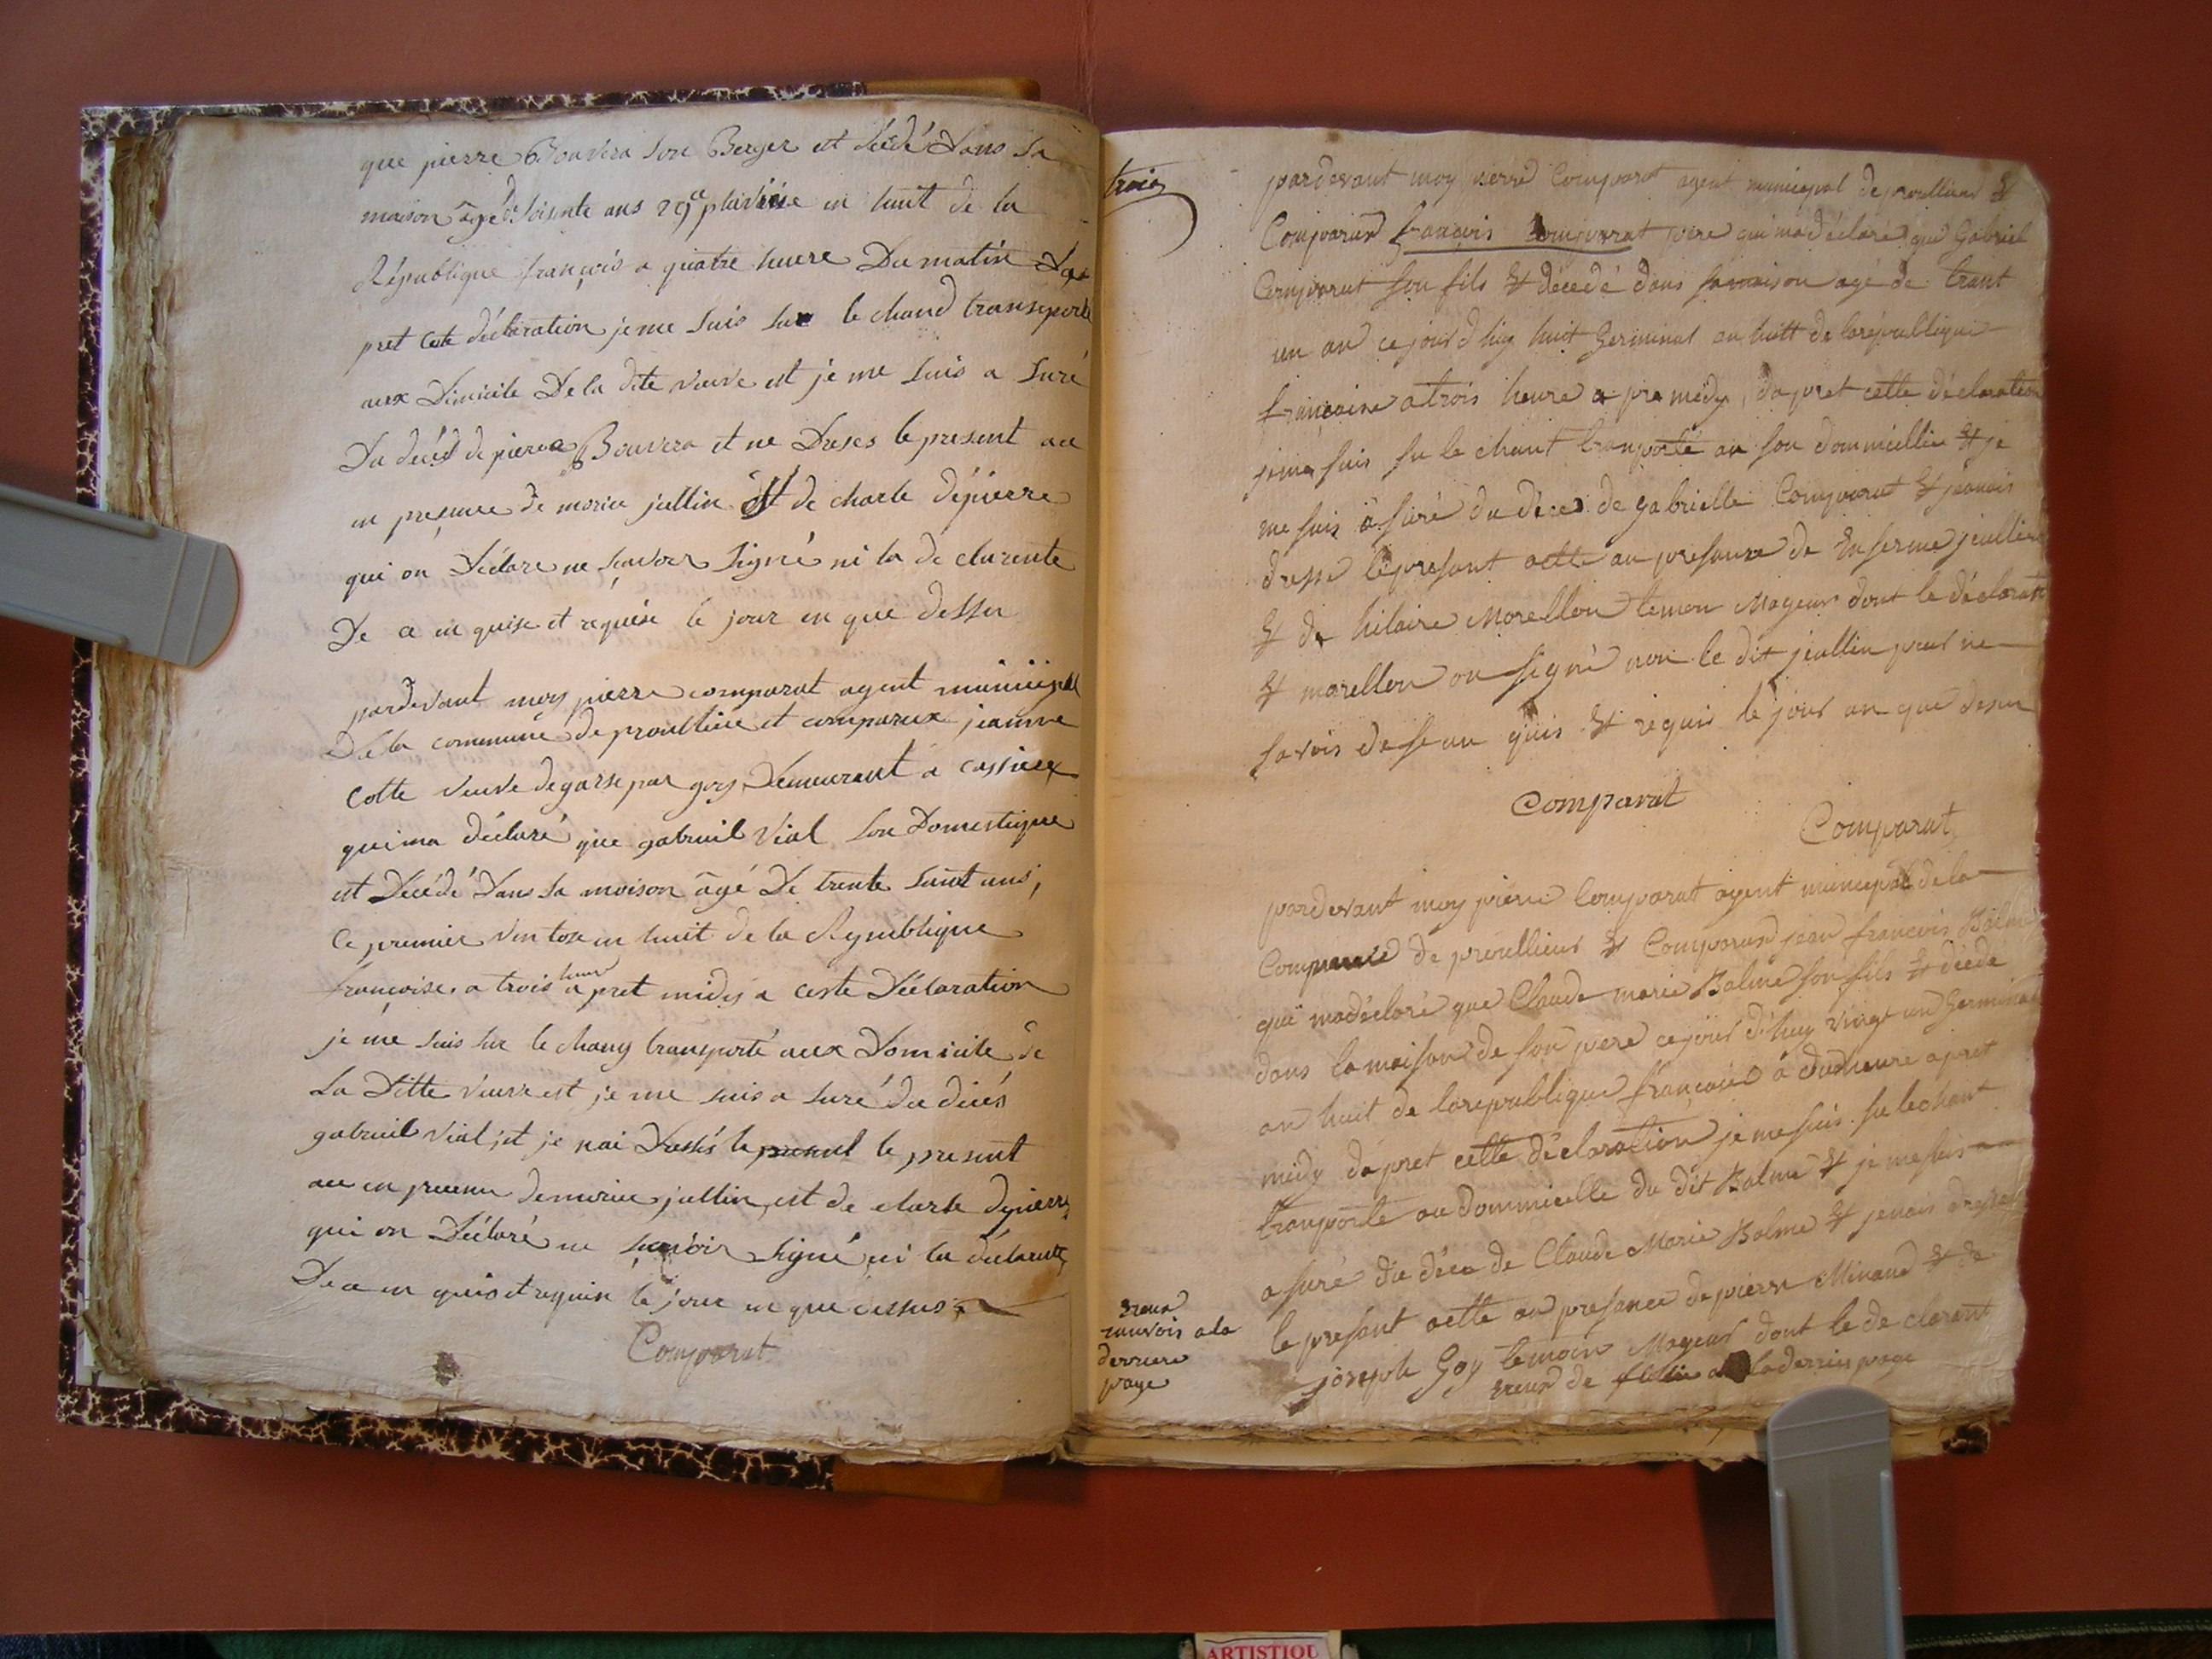 que pierre Bouvera son Berger est décédé Dans sa
maison âgé de soisente ans 29e pluviose en huit de la
République françois a quatre heure Du matin Da
pret ceste déclaration je me suis sur le chand transporté
aux Dimicile De la dite veuve est je me suis a suré
Du décéd de pierre Bouvera et ne Dresés le present ace
en presence de morice jullin est de charle dépierre
qui on Déclare ne scavoir signé ni la de clarente
De ce en quise et requise le jour en que dessu
pardevant moy pierre comparat agent municipal
De la commune de proultiere et comparux jeanne
Cotte veuve de garse par goy Demeurant a cassiere
qui ma déclaré que gabriel Vial son Domestique
est Décédé Dans sa moison âgé De trente ans,
Ce premier ventose en huit de la République
françoise a trois heure a pret midy a ceste Déclaration
je me suis sur le chang transporté aux Domicile de
La Ditte veuve est je me suis a suré du décés
gabriel vial et je nai Dressés le present le present
ace en presence de morice jullin est de charle depierre
qui on Déclaré ne scavoir signé ni la déclarente
De ce en quis et requise le jour en que dessus
Comparat
trois
pardevant moy pierre Comparat agent municipal de proullieu &
Comparud francois Comparat pere qui ma déclaré que Gabriel
Comparat son fils & décedé dans sa maison agé de trant
un an ce jour d huy huit Germinal an huit de la république
francoise a trois heure a pre midy, da pret cette déclaration
je me suis su le chant tranporté au son dommicillie & je
me suis a suré du déces de gabrielle Comparat & jeanois
dresse le presant acte an presance de Enserme jeulliere
& de hilaire Morellon temon Mageur dont le déclarat
& marellon on signé non le dit jeullin pour ne
savoir de se an quis & requis le jour an que desu
Comparat
Comparat
pardevant moy pierre Comparat agent municipal de la
Commune de proullieus & Comparud jean francois Balme
qui ma déclaré que Claude marie Balme son fils & décédé
dans la maison de son pere ce jour d'huy vingt un Germinal
an huit de la république françoise a heure apret
midy da pret cette déclaration je me suis su le chant
tranporté au dommicelle du dit Balme & je me suis a
a suré du déce de Claude Marie Balme & jenais dressé
le presant acte an presance de pierre Minaud & de
joseph Goy temoin Mageur dont le de clarant
Ereur de a la derniere page
Ereur
ranvois a la
derriere
page
ARTISTIQU